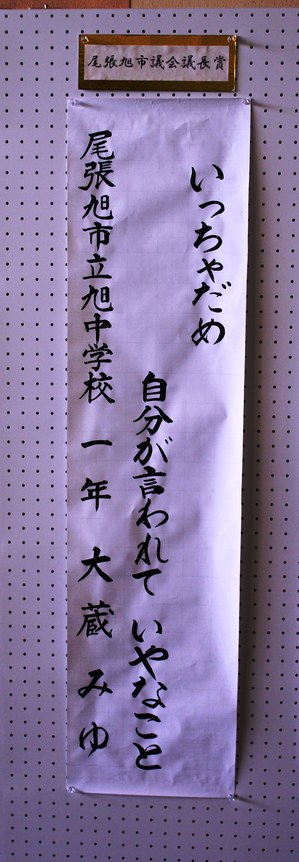 尾張旭市議会議長賞
いっちゃだめ
自分が言われて いやなこと
尾張旭市立旭中学校 一年 大蔵みゆ